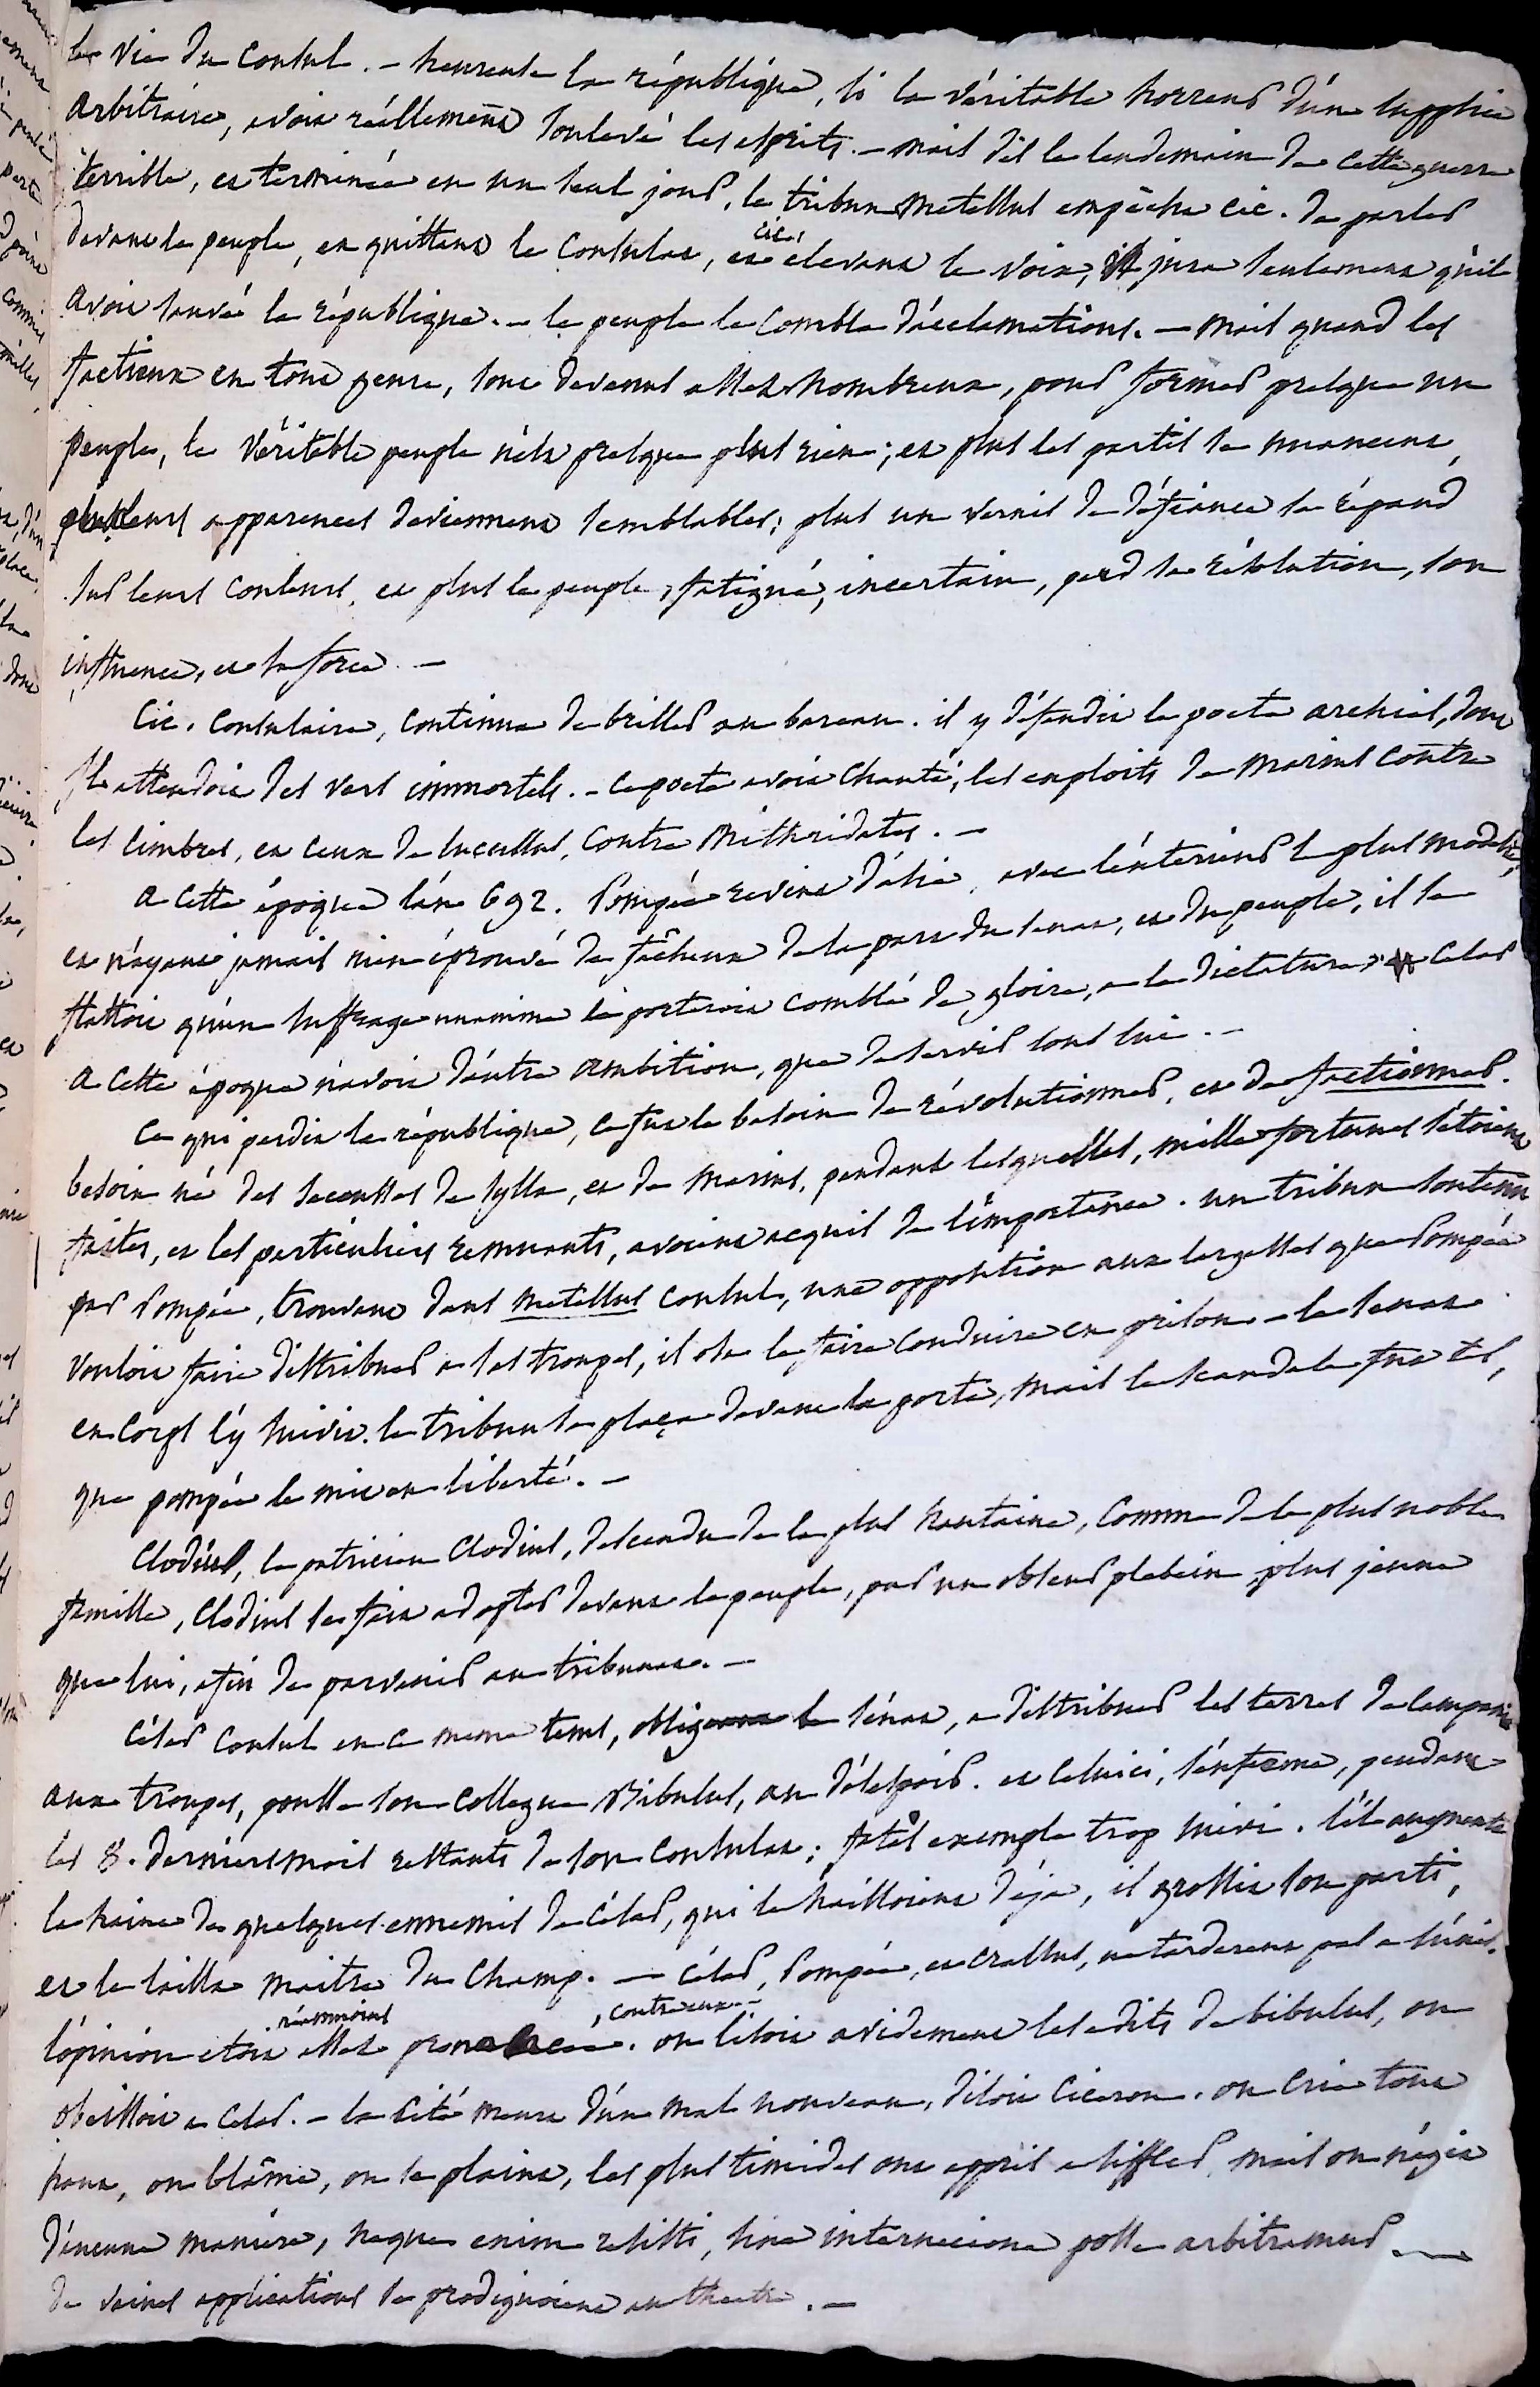 la vie du Consul. - heureuse la république, si la véritable horreur d'un supplice
arbitraire, avoit réellement soulevé les esprits. - mais dès le lendemain de cette guerre
terrible, et terminée en un seul jour, le tribun metellus empêche cic. de parler
devant le peuple, en quittant le Consulat, et cic. élevant la voix, jura seulement qu'il
avoit sauvé la république. - le peuple le combla d'acclamations. - mais quand les
factieux en tout genre, sont devenus assez nombreux, pour former presque un
peuple, le véritable peuple n'est presque plus rien; et plus les partis se nuancent,
plus leurs apparences deviennent semblables; plus un vernis de défiance se répand
sur leurs couleurs, et plus le peuple, fatigué, incertain, perd sa résolution, son
influence, et sa force. -
Cic. Consulaire, continua de briller au bareau. il y défendit le poete archias, dont
il attendoit des vers immortels. - ce poete avoit chanté, les exploits de marius contre
les Cimbres, et ceux de lucullus, contre Mithridates. -
a cette époque l'an 692. Pompée revint d'asie, avec l'extérieur le plus modeste,
et n'ayant jamais rien éprouvé de fâcheux de la part du senat, et du peuple, il se
flattoit qu'un suffrage unanime le porteroit comblé de gloire, a la dictature. Cesar
a cette époque n'avoit d'autre ambition, que de servir sous lui. -
Ce qui perdit la république, ce fut le besoin de révolutionner, et de factionner.
besoin né des secousses de sylla, et de marius, pendant lesquelles, mille fortunes s'étoient
faites, et les particuliers remuants, avoient acquis de l'importance. un tribun soutenu
par Pompée, trouvant dans metellus Consul, une opposition aux largesses que Pompée
vouloit faire distribuer a ses troupes, il osa le faire conduire en prison - le senat
en corps l'y suivit. le tribun se plaça devant la porte, mais le scandale fut tel,
que pompée le mit en liberté. -
Clodius, le patricien Clodius, descendu de la plus hautaine, comme de la plus noble
famille, Clodius se fait adopter devant le peuple, par un obscur plebeien plus jeune
que lui, afin de parvenir au tribunat. -
César Consul en ce meme tems, obligeant le sénat, a distribuer les terres de Campanie
aux troupes, poussa son collegue Bibulus, au désespoir. et celuici, s'enferma, pendant
les 8. derniers mois restants de son Consulat; fatal exemple trop suivi. s'il augmenta
la haine de quelques ennemis de César, qui le haïssoient déja, il grossit son parti,
et le laissa maitre du champ. - César, Pompée, et Crassus, ne tarderent pas a s'unir.
l'opinion etoit néanmoins assez prononcée, contre eux. - on lisoit avidement les edits de bibulus, on
obeissoit a Cesar. - la Cité meurt d'un mal nouveau, disoit Ciceron. on crie tout
haut, on blâme, on se plaint, les plus timides ont appris a siffler, mais on n'agit
d'aucune manière, neque enim resisti, sine internecione posse arbitramur
de vaines applications se prodiguoient au theatre. -